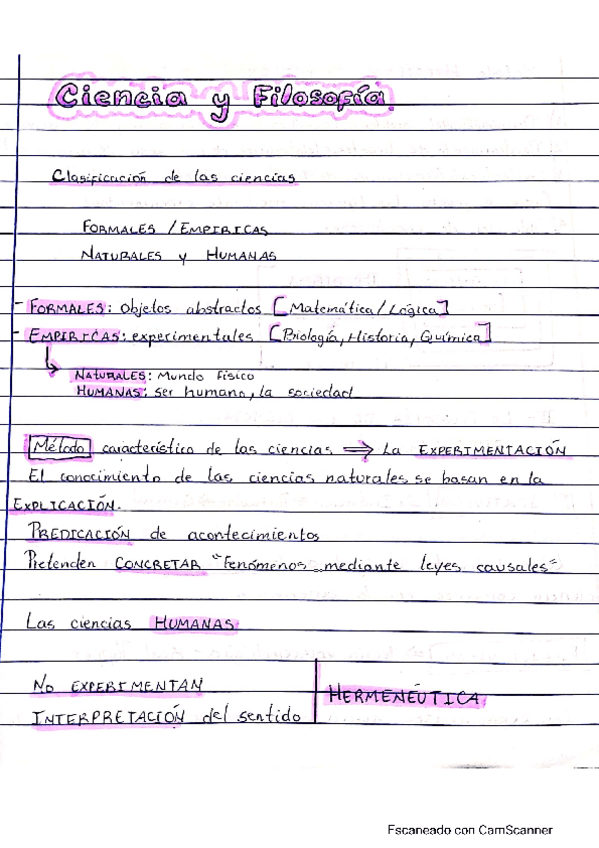 Ciencia y Filosofía
Clasificación de las ciencias
FORMALES / EMPIRICAS
NATURALES y HUMANAS
- FORMALES: Objetos abstractos [Matemática / Lógica]
- EMPIRICAS: experimentales [Biología, Historia, Química]
NATURALES: Mundo físico
HUMANAS: ser humano, la sociedad
Método característico de las ciencias ⇒ La EXPERIMENTACIÓN
El conocimiento de las ciencias naturales se basan en la
EXPLICACIÓN.
PREDICACIÓN de acontecimientos
Pretenden CONCRETAR "fenómenos mediante leyes causales"
Las ciencias HUMANAS
NO EXPERIMENTAN
INTERPRETACIÓN del sentido
HERMENÉUTICA
Escaneado con CamScanner